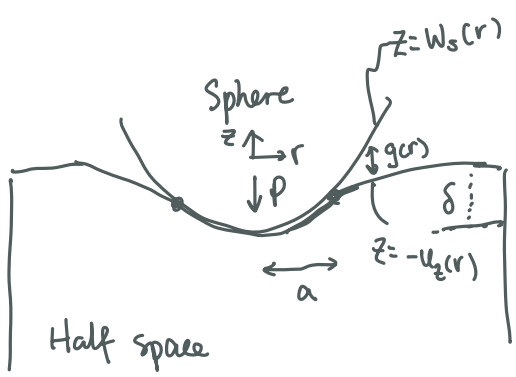 z=Ws(r)
Sphere
z
r
g(r)
P
δ
z=-uz(r)
a
Half space